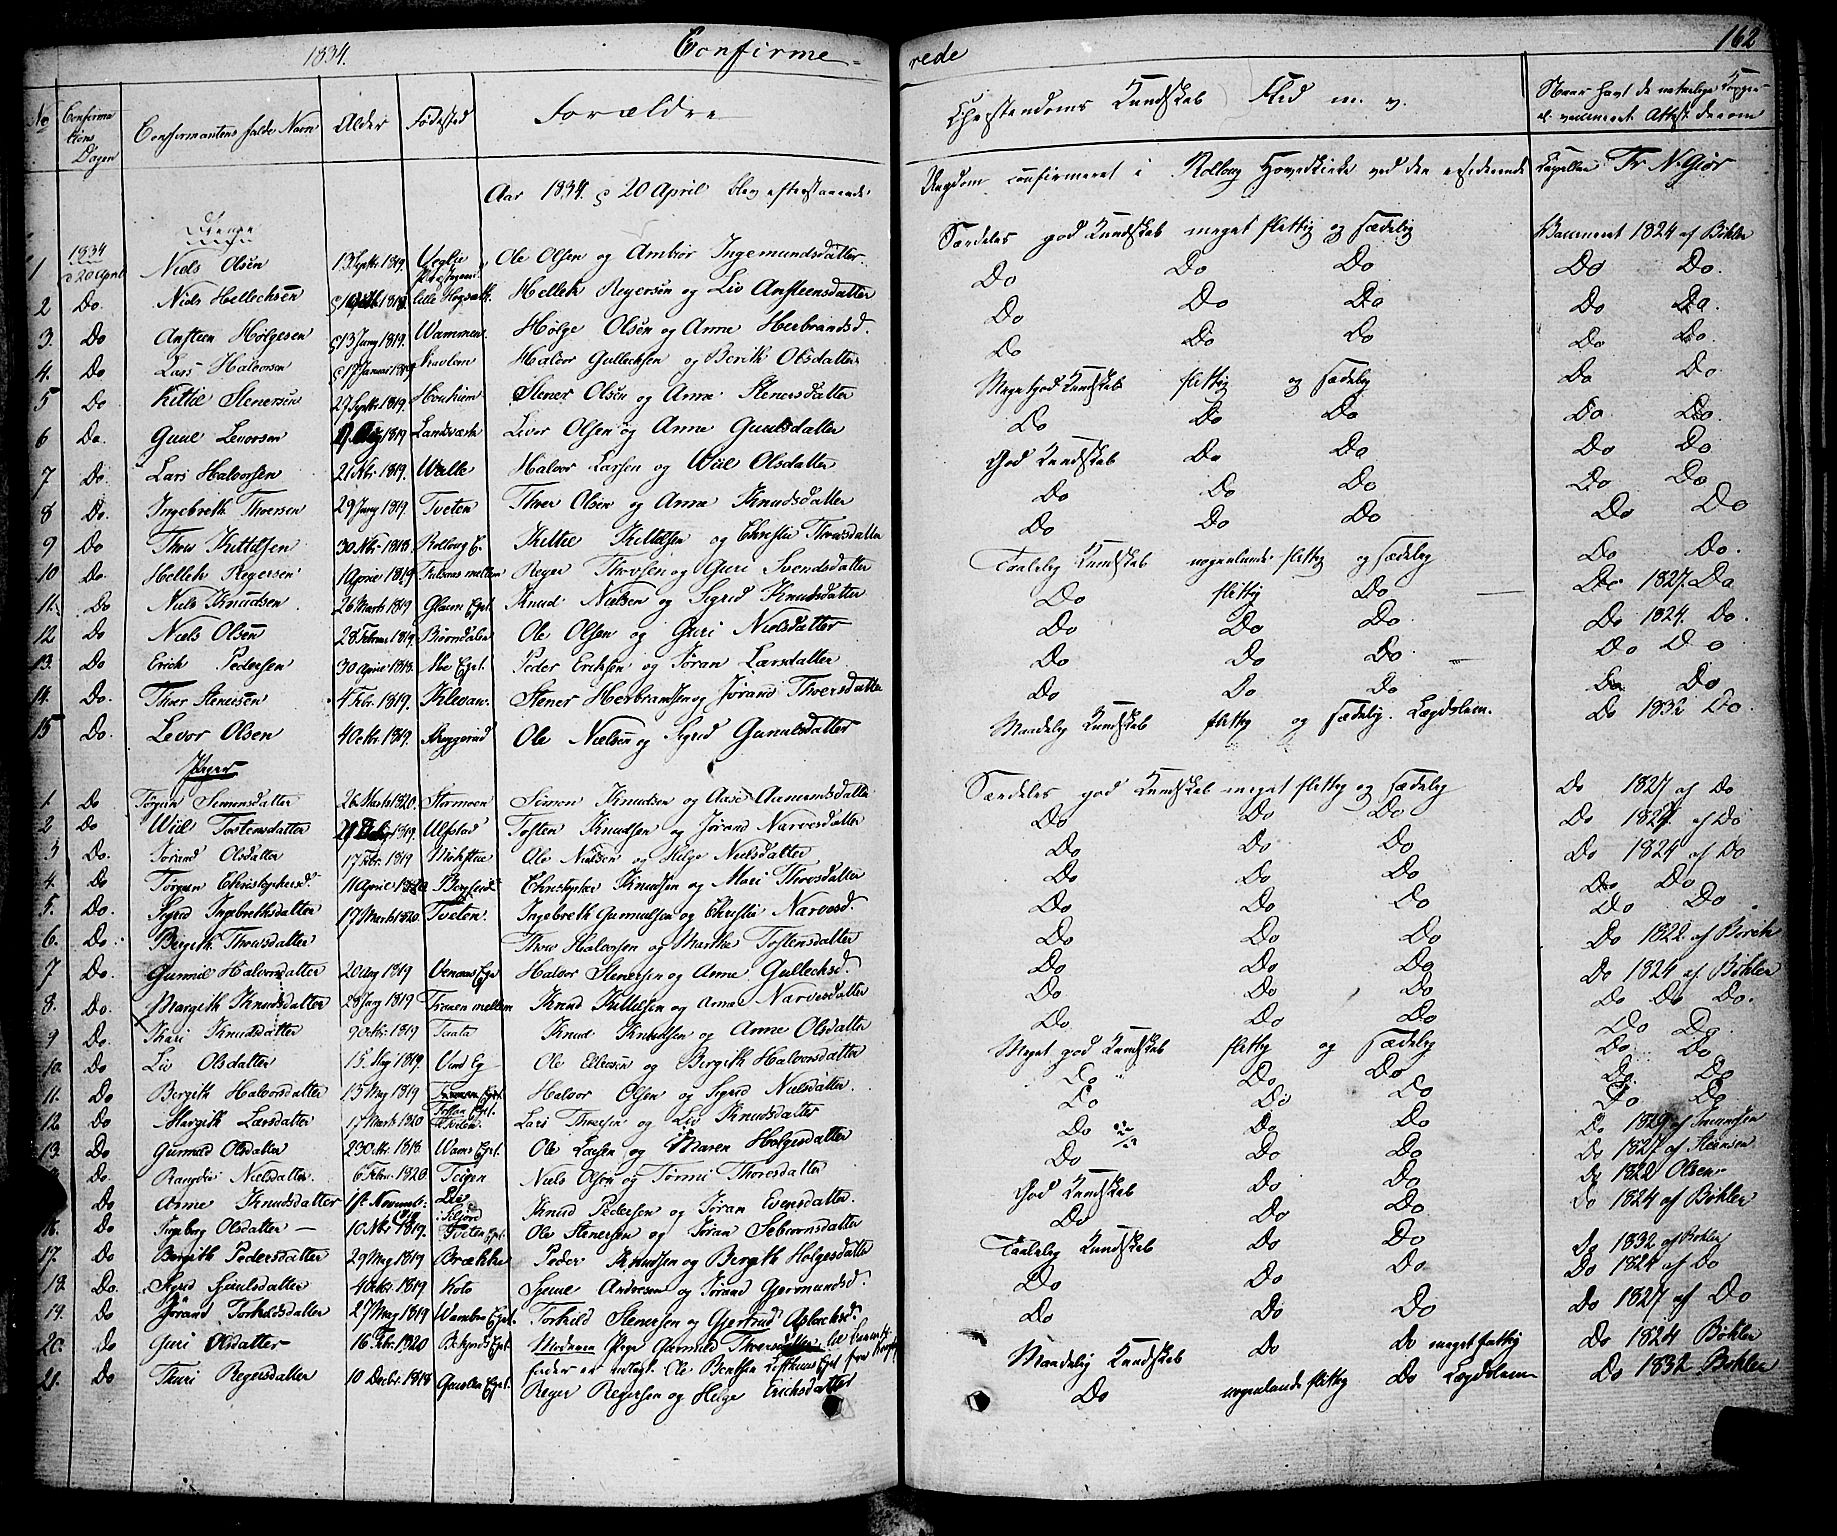 1834. Confirme= rede 162
No Confirmations Dagen Confirmantens fulde Navn Alder Fødested Forældre Christendoms Kundskab Flid m. v. Naar havt de naturlige Kopper el. vaccineret Attest derom
Aar 1834 d 20 April blev efterstaaende Ungdom confirmeret i Rolloug Hovedkirke ved den residerende Capellan Fr N. Giør
Drenge
1 1834 d 20 April Niels Olsen 13 Septbr 1819. Veglie Ole Olsen og Ambiør Ingemundsdatter. Særdeles god Kundskab meget flittig og sædelig Vaccineret 1824 af Bøhler
2 Do. Niels Hellechsen 1818 Lille Helleck Regersen og Liv Ansteensdatter Do Do Do Do Do.
3. Do Ansteen Holgesen 13 Juny 1819. Wammen. Holge Olsen og Anne Herbrandsd. Do Do Do Do Do.
4. Do Lars Halvorsen 17 Januar 1819 Halvor Gullechsen og Berith Olsdatter Do Do Do Do Do.
5 Do Kittil Stenersen 27 Septbr 1819. Stener Olsen og Anne Stenersdatter Meget god Kundskab flittig og sædelig Do Do
6 Do. Guul Levorsen 1819 Landværk Levor Olsen og Anne Guulsdatter Do Do Do Do Do.
7 Do. Lars Halvorsen 21 Nbr. 1819. Wælle Halvor Larsen og Wiil Olsdatter God Kundskab Do Do Do Do
8 Do. Ingebreth Thoersen 29 Juny 1819. Tveten Thoer Olsen og Anne Knudsdatter Do Do Do Do Do
9 Do Thov Kittilsen 30 Nbr. 1818. Rolloug E. Kittil Kittilsen og Christie Thovsdatter Do Do Do Do Do
10 Do. Helleck Regersen 1 April 1819 Fulsaas mellem Reger Thovsen og Guri Svendsdatter Taalelig Kundskab nogenlunde flittig og sædelig Do Do.
11. Do Niels Knudsen 26 Marts 1819 Glaim Eyet. Knud Nielsen og Sigrid Knudsdatter Do flittig Do Do 1827. Do
12 Do Niels Olsen 28 Februar 1819. Biørndalen Ole Olsen og Guri Nielsdatter Do Do Do Do 1824. Do.
13. Do Erich Pedersen 30 April 1818. Eyet. Peder Erichsen og Jøran Larsdatter Do Do Do. Do Do
14. Do. Thoer Stenersen 4 Febr. 1819. Klevan. Stener Herbrandsen og Jørand Thoersdatter Do Do Do Do Do
15 Do. Levor Olsen 4 Octbr. 1819. Skyggerud Ole Nielsen og Sigrid Gunulsdatter Maadelig Kundskab flittig og sædelig. Lægdslem. Do 1832 Do.
Piger
1. Do Jørgun Simensdatter 26 Marts 1820. Stormoen Simon Knudsen og Aase Særdeles god Kundskab meget flittig og sædelig Do 1827 af Do
2 Do Wiil Tostensdatter 1819. Ulfstad Tosten Knudsen og Jørand Narvesdatter Do Do Do Do 1824 af Do
3 Do. Jørand Olsdatter 17 Febr. 1819 Ole Nielsen og Helge Nielsdatter Do Do Do Do 1824 af Do
4. Do Jørgun Christophersd. 11 April 1820 Christopher Knudsen og Mari Thovsdatter Do Do Do Do Do
5. Do. Sigrid Ingebrethsdatter 17 Marts 1820 Tveten. Ingebreth Gunnulsen og Christie Narvesd. Do Do Do Do Do
6. Do. Bergith Thovsdatter Thov Halvorsen og Martha Tostensdatter Do Do Do Do 1822 af Birch
7 Do. Gunnil Halvorsdatter 20 Aug 1819 Venaas Eyet Halvor Stenersen og Anne Gullechsd. Do Do Do Do 1824 af Bøhler
8. Do. Margith Knudsdatter 28 Juny 1819 mellem Knud Kittelsen og Anne Narvesdatter Do Do Do Do Do Do.
9 Do. Kari Knudsdatter 9 Octbr. 1819 Traata Knud Knudsen og Anne Olsdatter Do Do Do Do Do.
10. Do. Liv Olsdatter 15. Aug 1819. Ole Ellevsen og Bergith Halvorsdatter Meget god Kundskab flittig og sædelig Do. Do
11. Do Bergith Halvorsdatter 15 May 1819 Halvor Olsen og Sigrid Nielsdatter. Do Do Do Do. Do
12. Do Margith Larsdatter 17 Marts 1820 Eyet. Lars Thoersen og Liv Knudsdatter Do Do Do Do Do
13. Do Gunnild Olsdatter 23 Octbr. 1818. Eyet. Ole Larsen og Maren Holgesdatter Do Do Do Do 1829 af
Do Rangdie Nielsdatter. 6 Febr. 1820 Teigen Niels Olsen og Tønni Thoresdatter Do Do Do Do 1827 af
Do Anne Knudsdatter Lie Siljord Knud Pedersen og Jøran Evensdatter. God Kundskab Do Do Do 1822 Olsen
16. Do Ingeborg Olsdatter 10 Nbr 1819. Tveten Eyet. Ole Stenersen og Jøran Sebiørnsdatter Do Do Do Do 1824 af Bøhler
17. Do Bergith Pedersdatter 29 May 1819 Brække Peder Knudsen og Bergith Holgesdatter Taalelig Kundskab Do Do Do 1832 af Bøhler
18. Do. Sigrid Sjulsdatter 4 Octbr. 1819 Koto Sjul Andresen og Jørand Giermundsd. Do Do Do Do 1824 af Do
19. Do Jørand Torkildsdatter 27 May 1819 Wambra Eyet. Torkild Stenersen og Giertrud Aslachsd. Do Do Do Do 1827 af Do
20. Do Guri Olsdatter 16 Febr. 1820 Eyet. Moderen Pige Gunnild Thoersdatter Maadelig Kundskab Do Do meget flittig Do 1824 Bøhler
Fader er udlagt Ole Bentsen Eyet
21. Do Thuri Regersdatter 10 Decbr. 1818 Eyet. Reger Regersen og Helge Erichsdatter Do nogenlunde flittig Do Lægdslem Do 1832 Bøhler